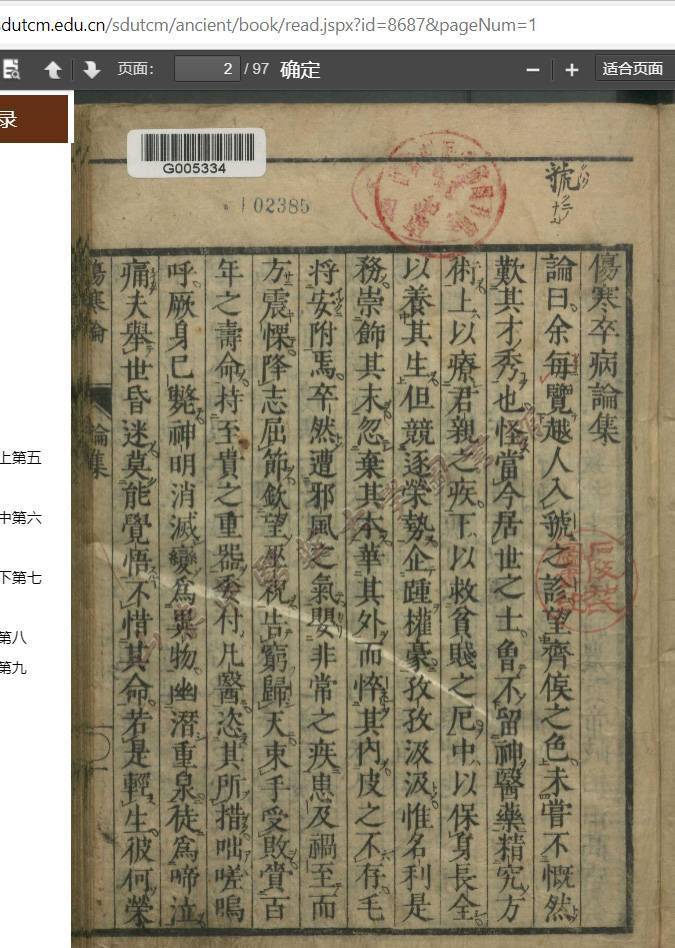 sdutcm.edu.cn/sdutcm/ancient/book/read.jspx?id=8687&pageNum=1
页面: 2 / 97 确定
适合页面
录
上第五
中第六
下第七
第八
第九
G005334
102385
號
傷寒卒病論集
論曰余每覽越人入虢之診望齊侯之色未嘗不慨然
歎其才秀也怪當今居世之士曾不留神醫藥精究方
術上以療君親之疾下以救貧賤之厄中以保身長全
以養其生但競逐榮勢企踵權豪孜孜汲汲惟名利是
務崇飾其末忽棄其本華其外而悴其內皮之不存毛
將安附焉卒然遭邪風之氣嬰非常之疾患及禍至而
方震慄降志屈節欽望巫祝告窮歸天束手受敗賷百
年之壽命持至貴之重器委付凡醫恣其所措咄嗟嗚
呼厥身已斃神明消滅變為異物幽潛重泉徒為啼泣
痛夫舉世昏迷莫能覺悟不惜其命若是輕生彼何榮
傷寒論 論集